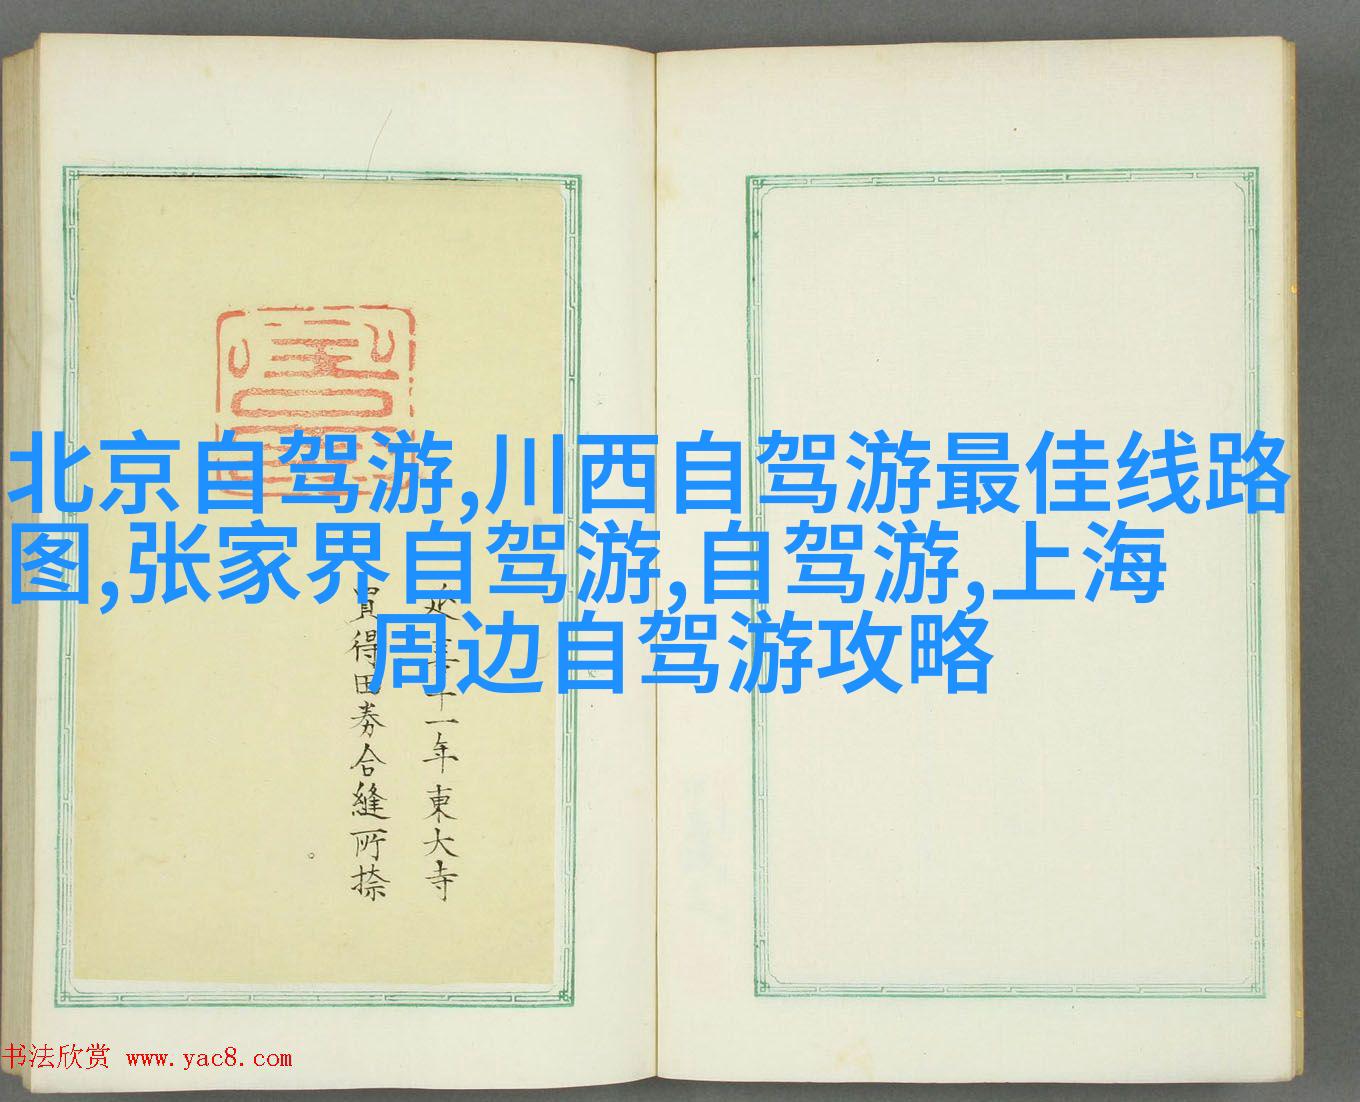 北京自驾游,川西自驾游最佳线路
图,张家界自驾游,自驾游,上海
周边自驾游攻略
十一年東大寺
買得田券合縫所捺
书法欣赏 www.yac8.com